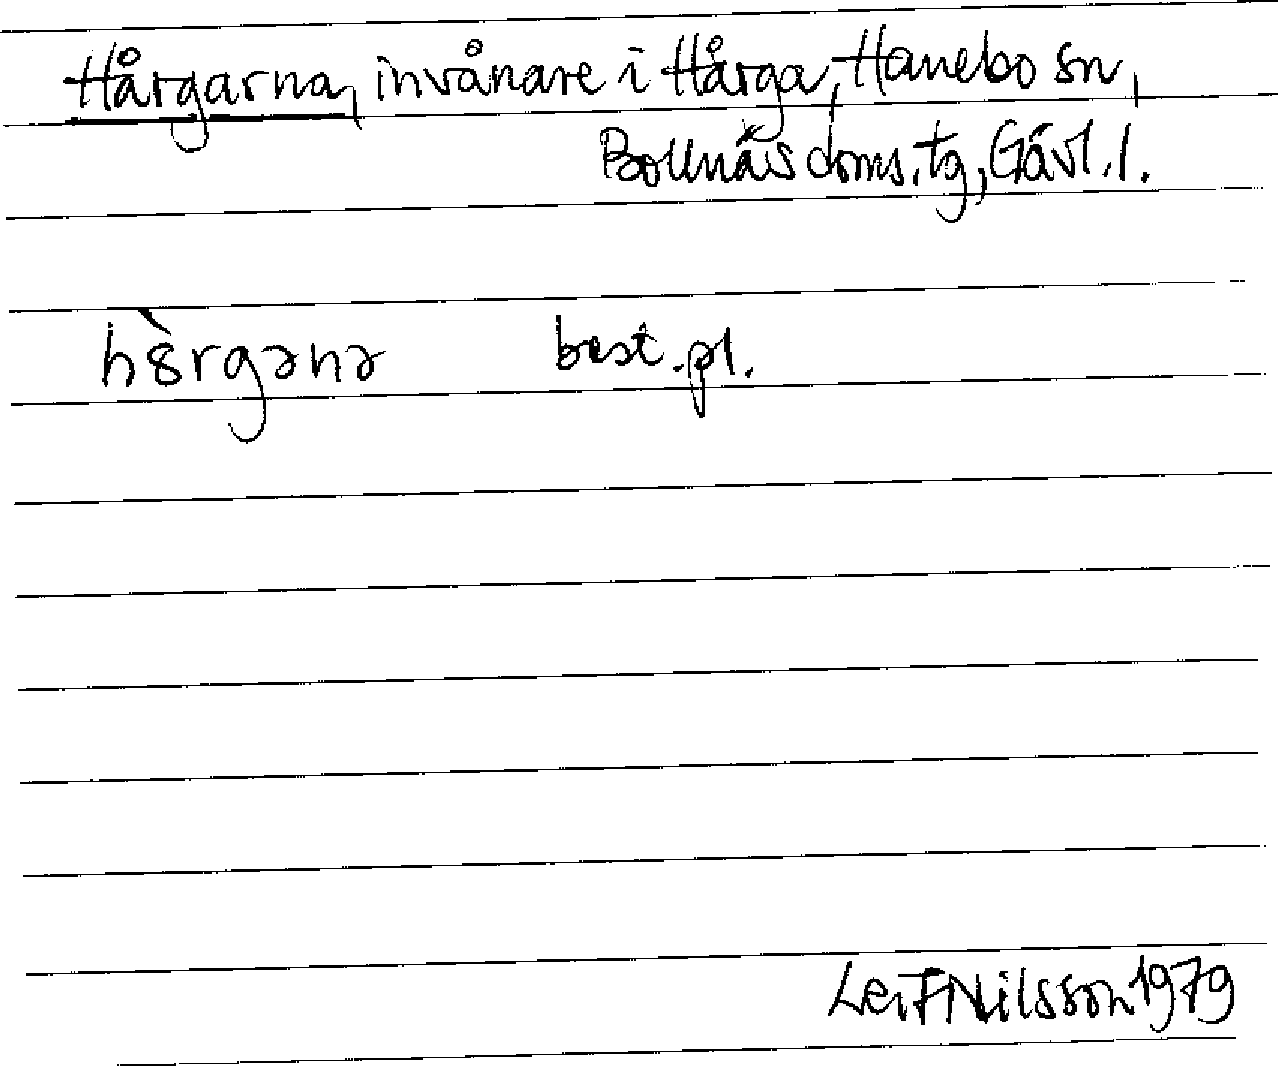 Hårgarna, invånare i Hårga, Hanebo sn,
Bollnäs doms.tg, Gävl.l.
hȣ̀rgənə best.pl.
Leif Nilsson 1979